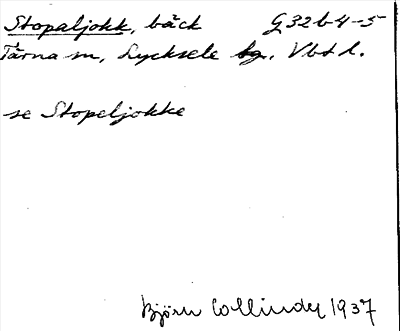 Stopaljokk, bäck G32b4-5
Tärna sn, Lycksele lg. Vbt l.
se Stopeljokke
Björn Collinder 1937